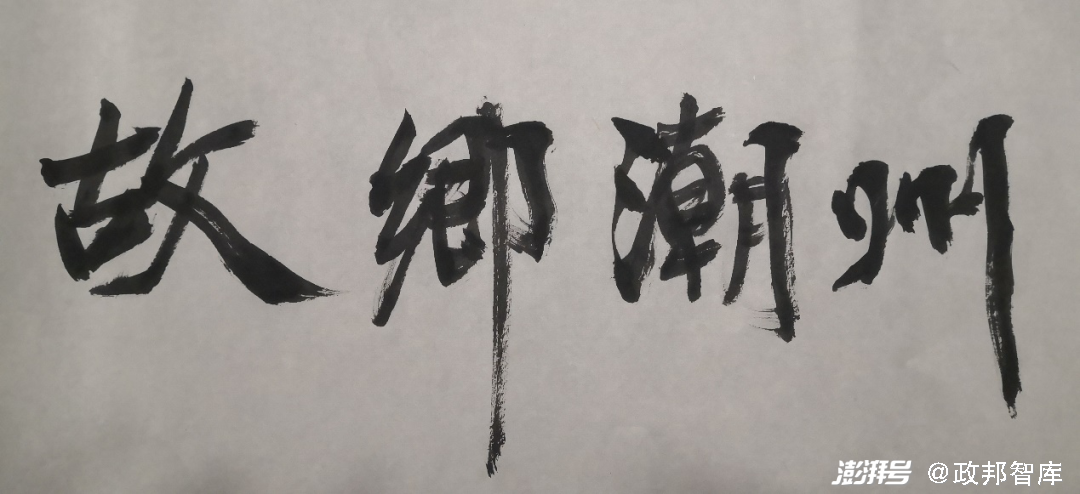 故鄉潮州
澎湃号 @政邦智库